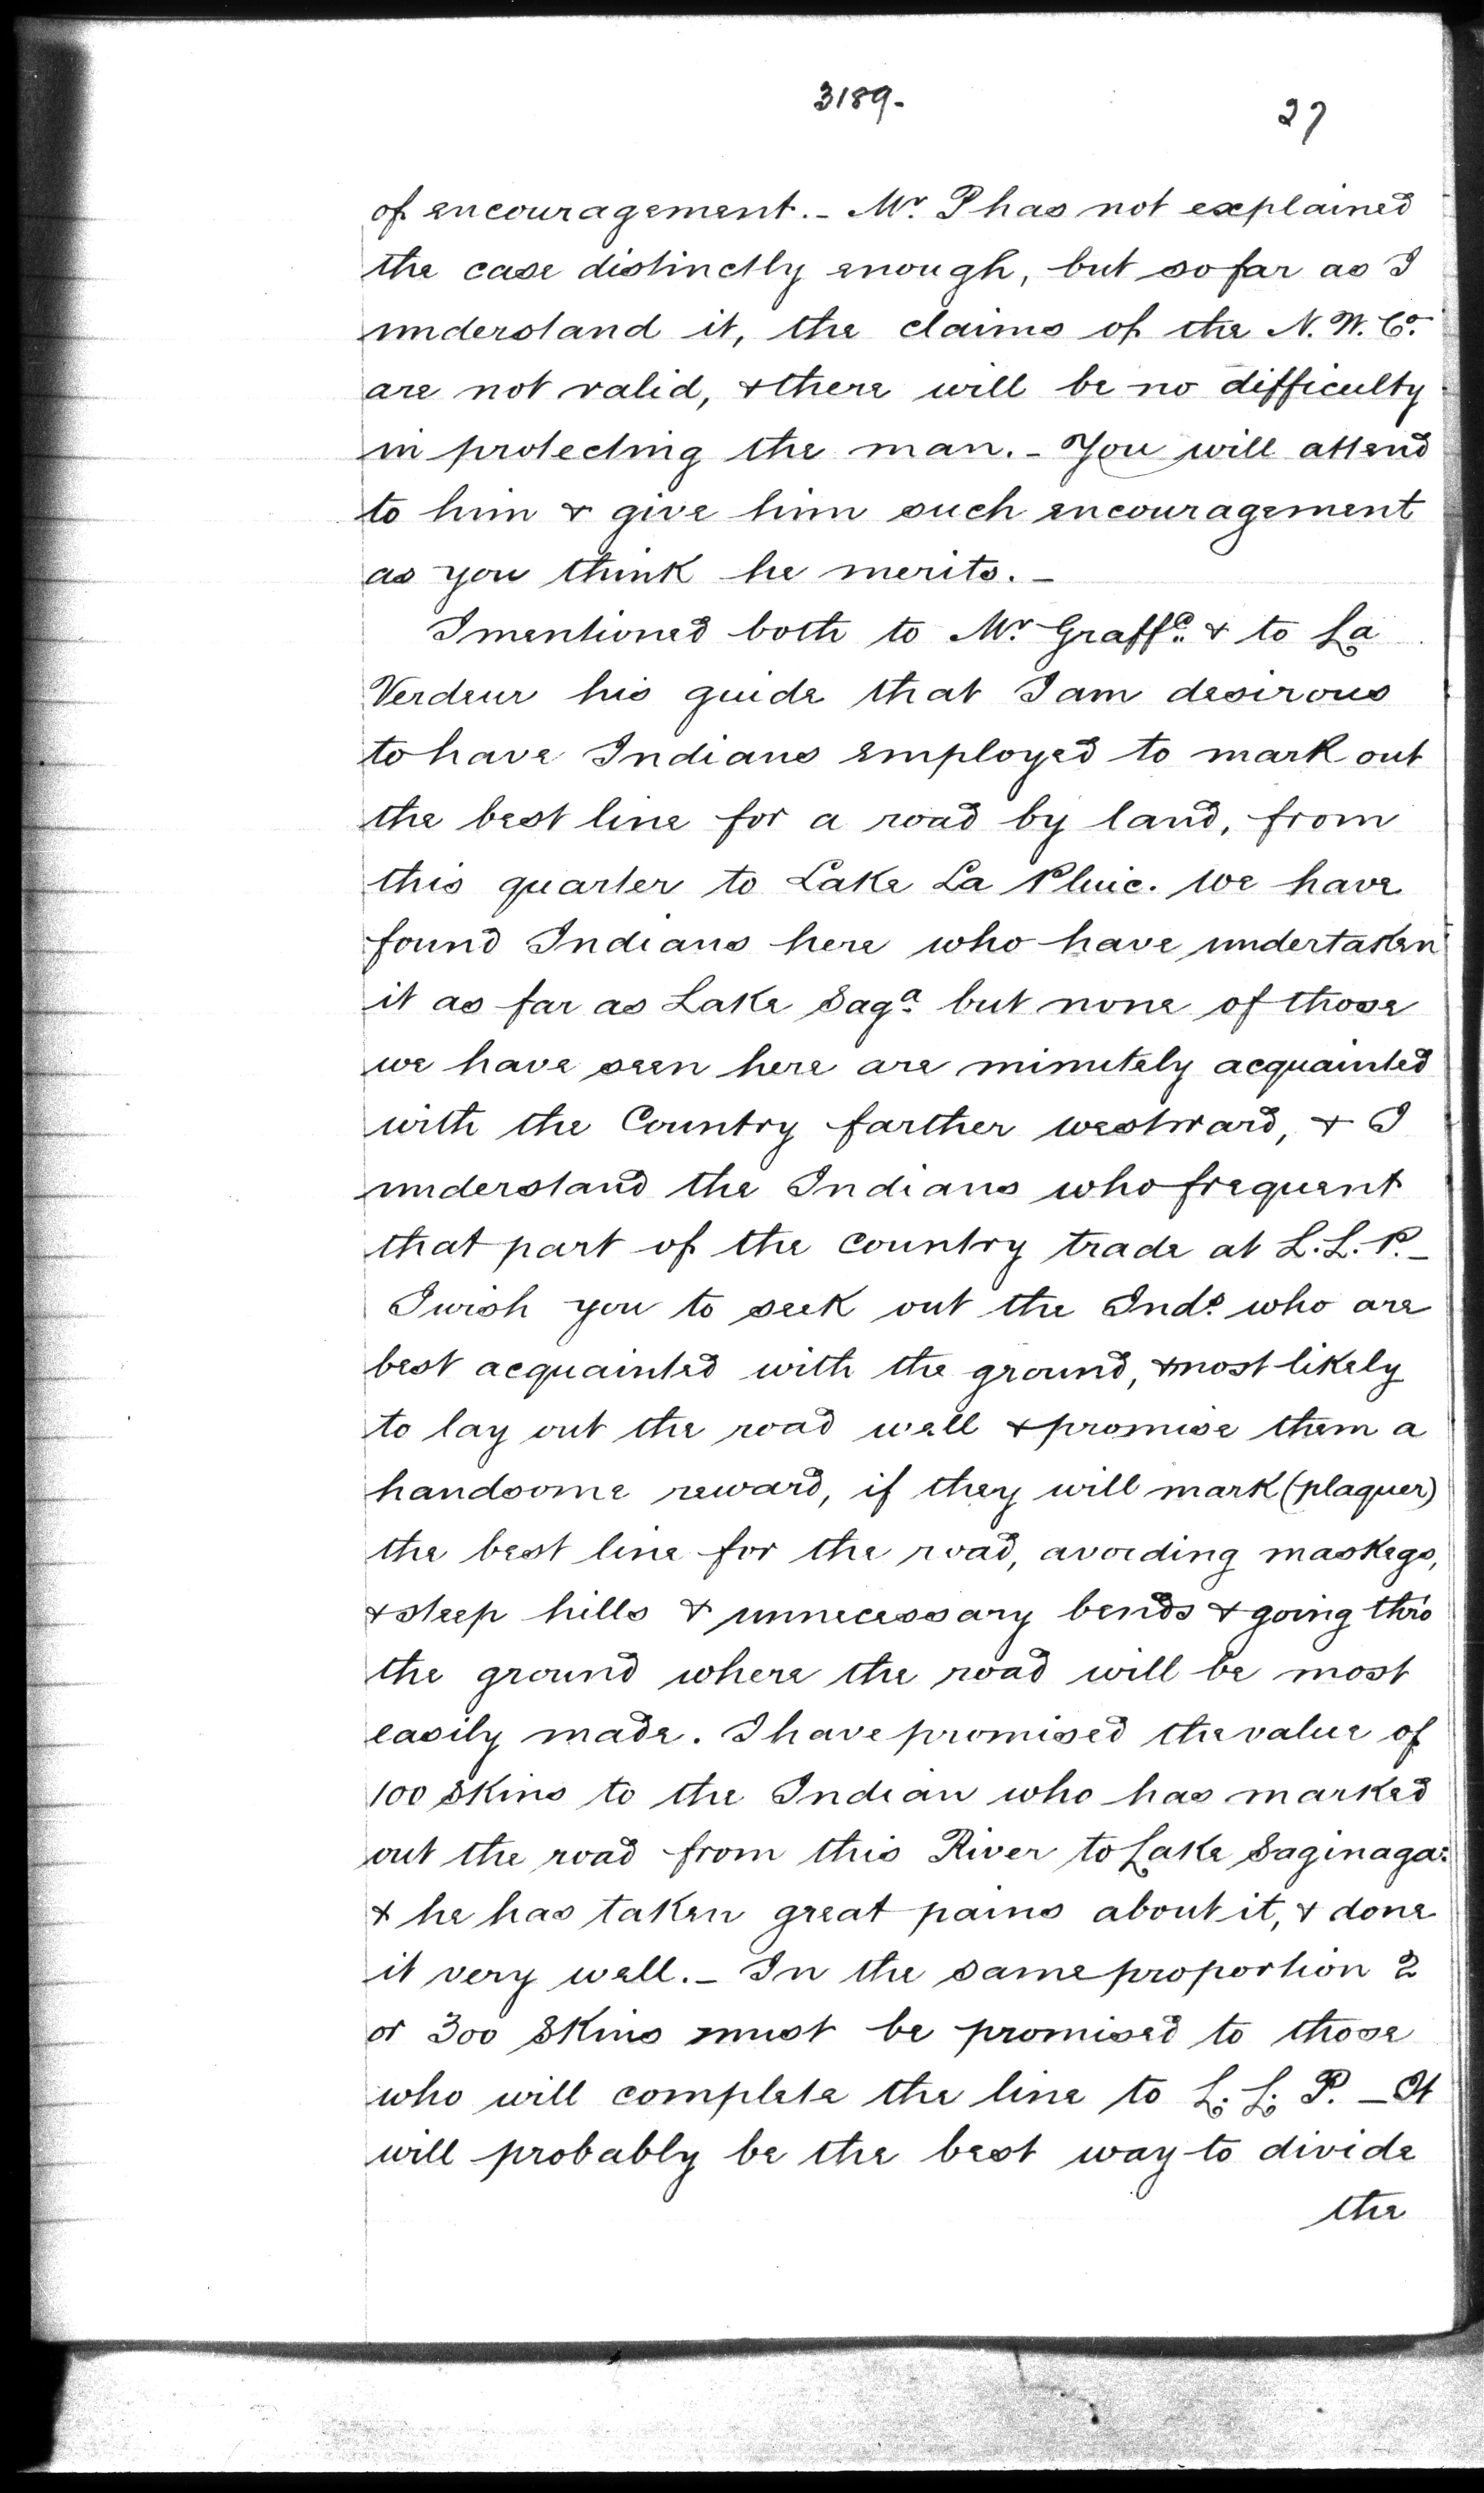 3189-
27
of encouragement. - Mr. P has not explained
the case distinctly enough, but so far as I
understand it, the claims of the N. W. Co.
are not valid, & there will be no difficulty
in protecting the man. - You will attend
to him & give him such encouragement
as you think he merits. -
I mentioned both to Mr. Graffd. & to La
Verdeur his guide that I am desirous
to have Indians employed to mark out
the best line for a road by land, from
this quarter to Lake La Pluie. We have
found Indians here who have undertaken
it as far as Lake Saga. but none of those
we have seen here are minutely acquainted
with the Country farther westward, & I
understand the Indians who frequent
that part of the country trade at L. L. P. -
I wish you to seek out the Inds. who are
best acquainted with the ground, & most likely
to lay out the road well & promise them a
handsome reward, if they will mark (plaquer)
the best line for the road, avoiding maskegs,
& steep hills & unnecessary bends & going thro
the ground where the road will be most
easily made. I have promised the value of
100 Skins to the Indian who has marked
out the road from this River to Lake Saginaga:
& he has taken great pains about it, & done
it very well. - In the same proportion 2
or 300 Skins must be promised to those
who will complete the line to L. L. P. - It
will probably be the best way to divide
the